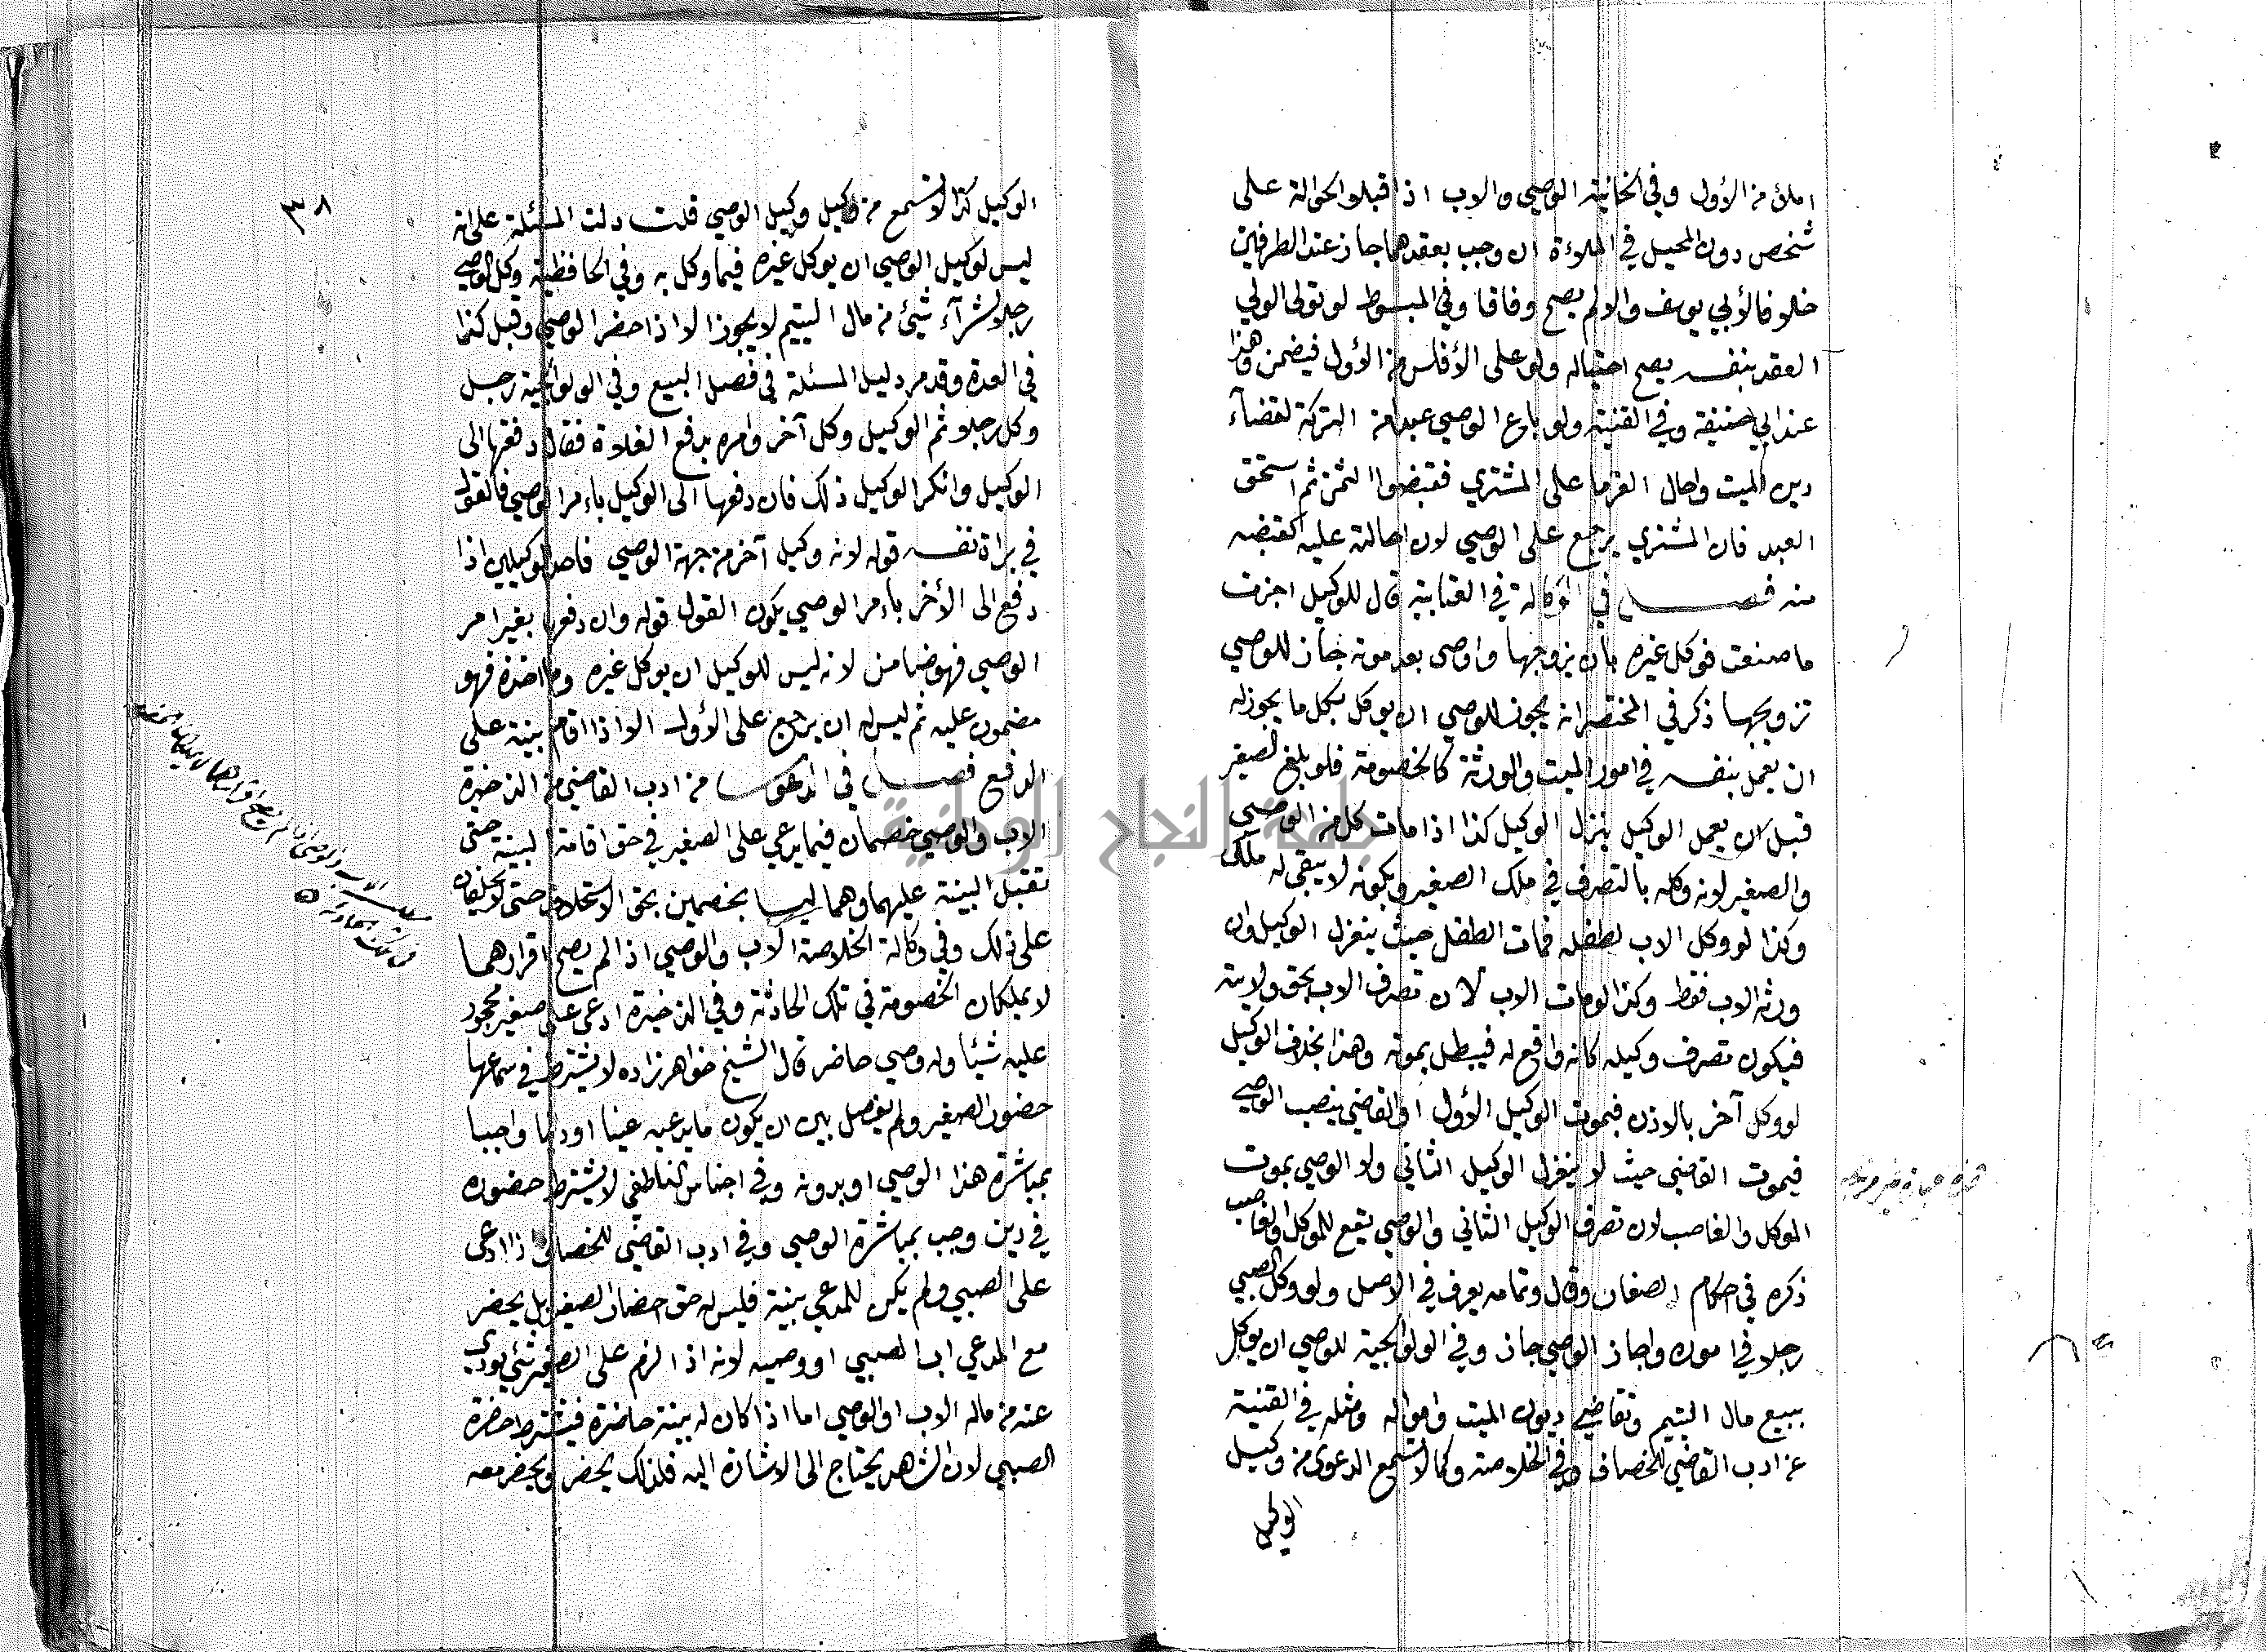 املئ من الأول وفي الخانية الوصي والاب اذا قبلوا الحوالة على
شخص دون المحيل في الملاءة ان وجب بعقدهما جاز عند الطرفين
خلافا لأبي يوسف والا لم يصح وفاقا وفي المبسوط لو تولى الولي
العقد بنفسه يصح احتياله ولو على الأفلس من الأول فيضمن وهذا
عند ابي حنيفة وفي القنية ولو باع الوصي عبدا من التركة لقضآء
دين الميت واحال الغرما على المشتري فقبضوا الثمن ثم استحق
العبد فان المشتري يرجع على الوصي لان احالته عليه كقبضه
منه فصل في الوكالة في العتابية قال للوكيل اجزت
ما صنعت فوكل غيره بان يزوجها واوصى بعد موته جاز للوصي
تزويجها ذكر في المختصر انه يجوز للوصي ان يوكل بكل ما يجوز له
ان يعمل بنفسه في امور الميت والورثة كالخصومة فلو بلغ الصغير
قبل ان يعمل الوكيل ينزل الوكيل كذا اذا مات كل من الوصي
والصغير لانه وكله بالتصرف في ملك الصغير وبكونه لا يبقى له ملك
وكذا لو وكل الاب لطفله فمات الطفل حيث ينعزل الوكيل وان
ورثه الاب فقط وكذا لو مات الاب لان تصرف الاب بحق ولايته
فيكون تصرف وكيله كانه واقع له فيبطل بموته وهذا بخلاف الوكيل
لو وكل آخر بالاذن فيموت الوكيل الأول او القاضي ينصب الوصي
فيموت القاضي حيث لا ينعزل الوكيل الثاني ولا الوصي بموت
الموكل والناصب لان تصرف الوكيل الثاني والوصي يقع للموكل والناصب
ذكره في احكام الصغار وقال وتمامه يعرف في الاصل ولو وكل الصبي
رجلا في اموره واجاز الوصي جاز وفي الولوالجية للوصي ان يوكل
ببيع مال اليتيم وتقاضي ديون الميت وامواله ومثله في القنية
عن ادب القاضي للخصاف وفي الخلاصة وكما لا تسمع الدعوى من وكيل
الوكيل
٣٨
الوكيل كذا لا تسمع من وكيل وكيل الوصي قلت دلت المسئلة على انه
ليس لوكيل الوصي ان يوكل غيره فيما وكل به وفي الحافظية وكل الوصي
رجلا لشرآء شيئ من مال اليتيم لا يجوز الا اذا حضر الوصي وقبل كذا
في العدة وقد مر دليل المسئلة في فصل البيع وفي الولوالجية رجل
وكل رجلا ثم الوكيل وكل آخر وامره بدفع الغلاة فقال دفعها الى
الوكيل وانكر الوكيل ذلك فان دفعها الى الوكيل باءمر الوصي فالقول
في براة نفسه قوله لانه وكيل آخر من جهة الوصي فاحد الوكيلين اذا
دفع الى الأخر باءمر الوصي يكون القول قوله وان دفعها بغير امر
الوصي فهو ضامن لانه ليس للوكيل ان يوكل غيره وما اخذه فهو
مضمون عليه ثم ليس له ان يرجع على الأول الا اذا اقام بينة على
الدفع فصل في الدعوى من ادب القاضي من الذخيرة
الاب والوصي خصمان فيما يدعي على الصغير في حق اقامة البينة حتى
تقبل البينة عليهما وهما ليسا بخصمين بحق الاستحلاف حتى لا يحلفان
على ذلك وفي وكالة الخلاصة الاب والوصي اذا لم يصح اقرارهما
لا يملكان الخصومة في تلك الحادثة وفي الذخيرة ادعى على صغير محجور
عليه شيئا وله وصي حاضر قال الشيخ خواهر زاده لا يشترط في سماعها
حضور الصغير ولم يفصل بين ان يكون ما يدعيه عينا او دينا واجبا
بمباشرة هذا الوصي او بدونه وفي اجناس الناطفي لا يشترط حضوره
في دين وجب بمباشرة الوصي وفي ادب القاضي للخصاف اذا ادعى
على الصبي ولم يكن للمدعي بينة فليس له حق احضار الصغير بل يحضر
مع المدعي اب الصبي او وصيه لانه اذا الزم على الصغير شيئ يودى
عنه من ماله الاب او الوصي اما اذا كان له بينة حاضرة فيشترط حضرة
الصبي لان الشاهد يحتاج الى الاشارة اليه فلذلك يحضر ويحضر معه
جامعة النجاح الوطنية